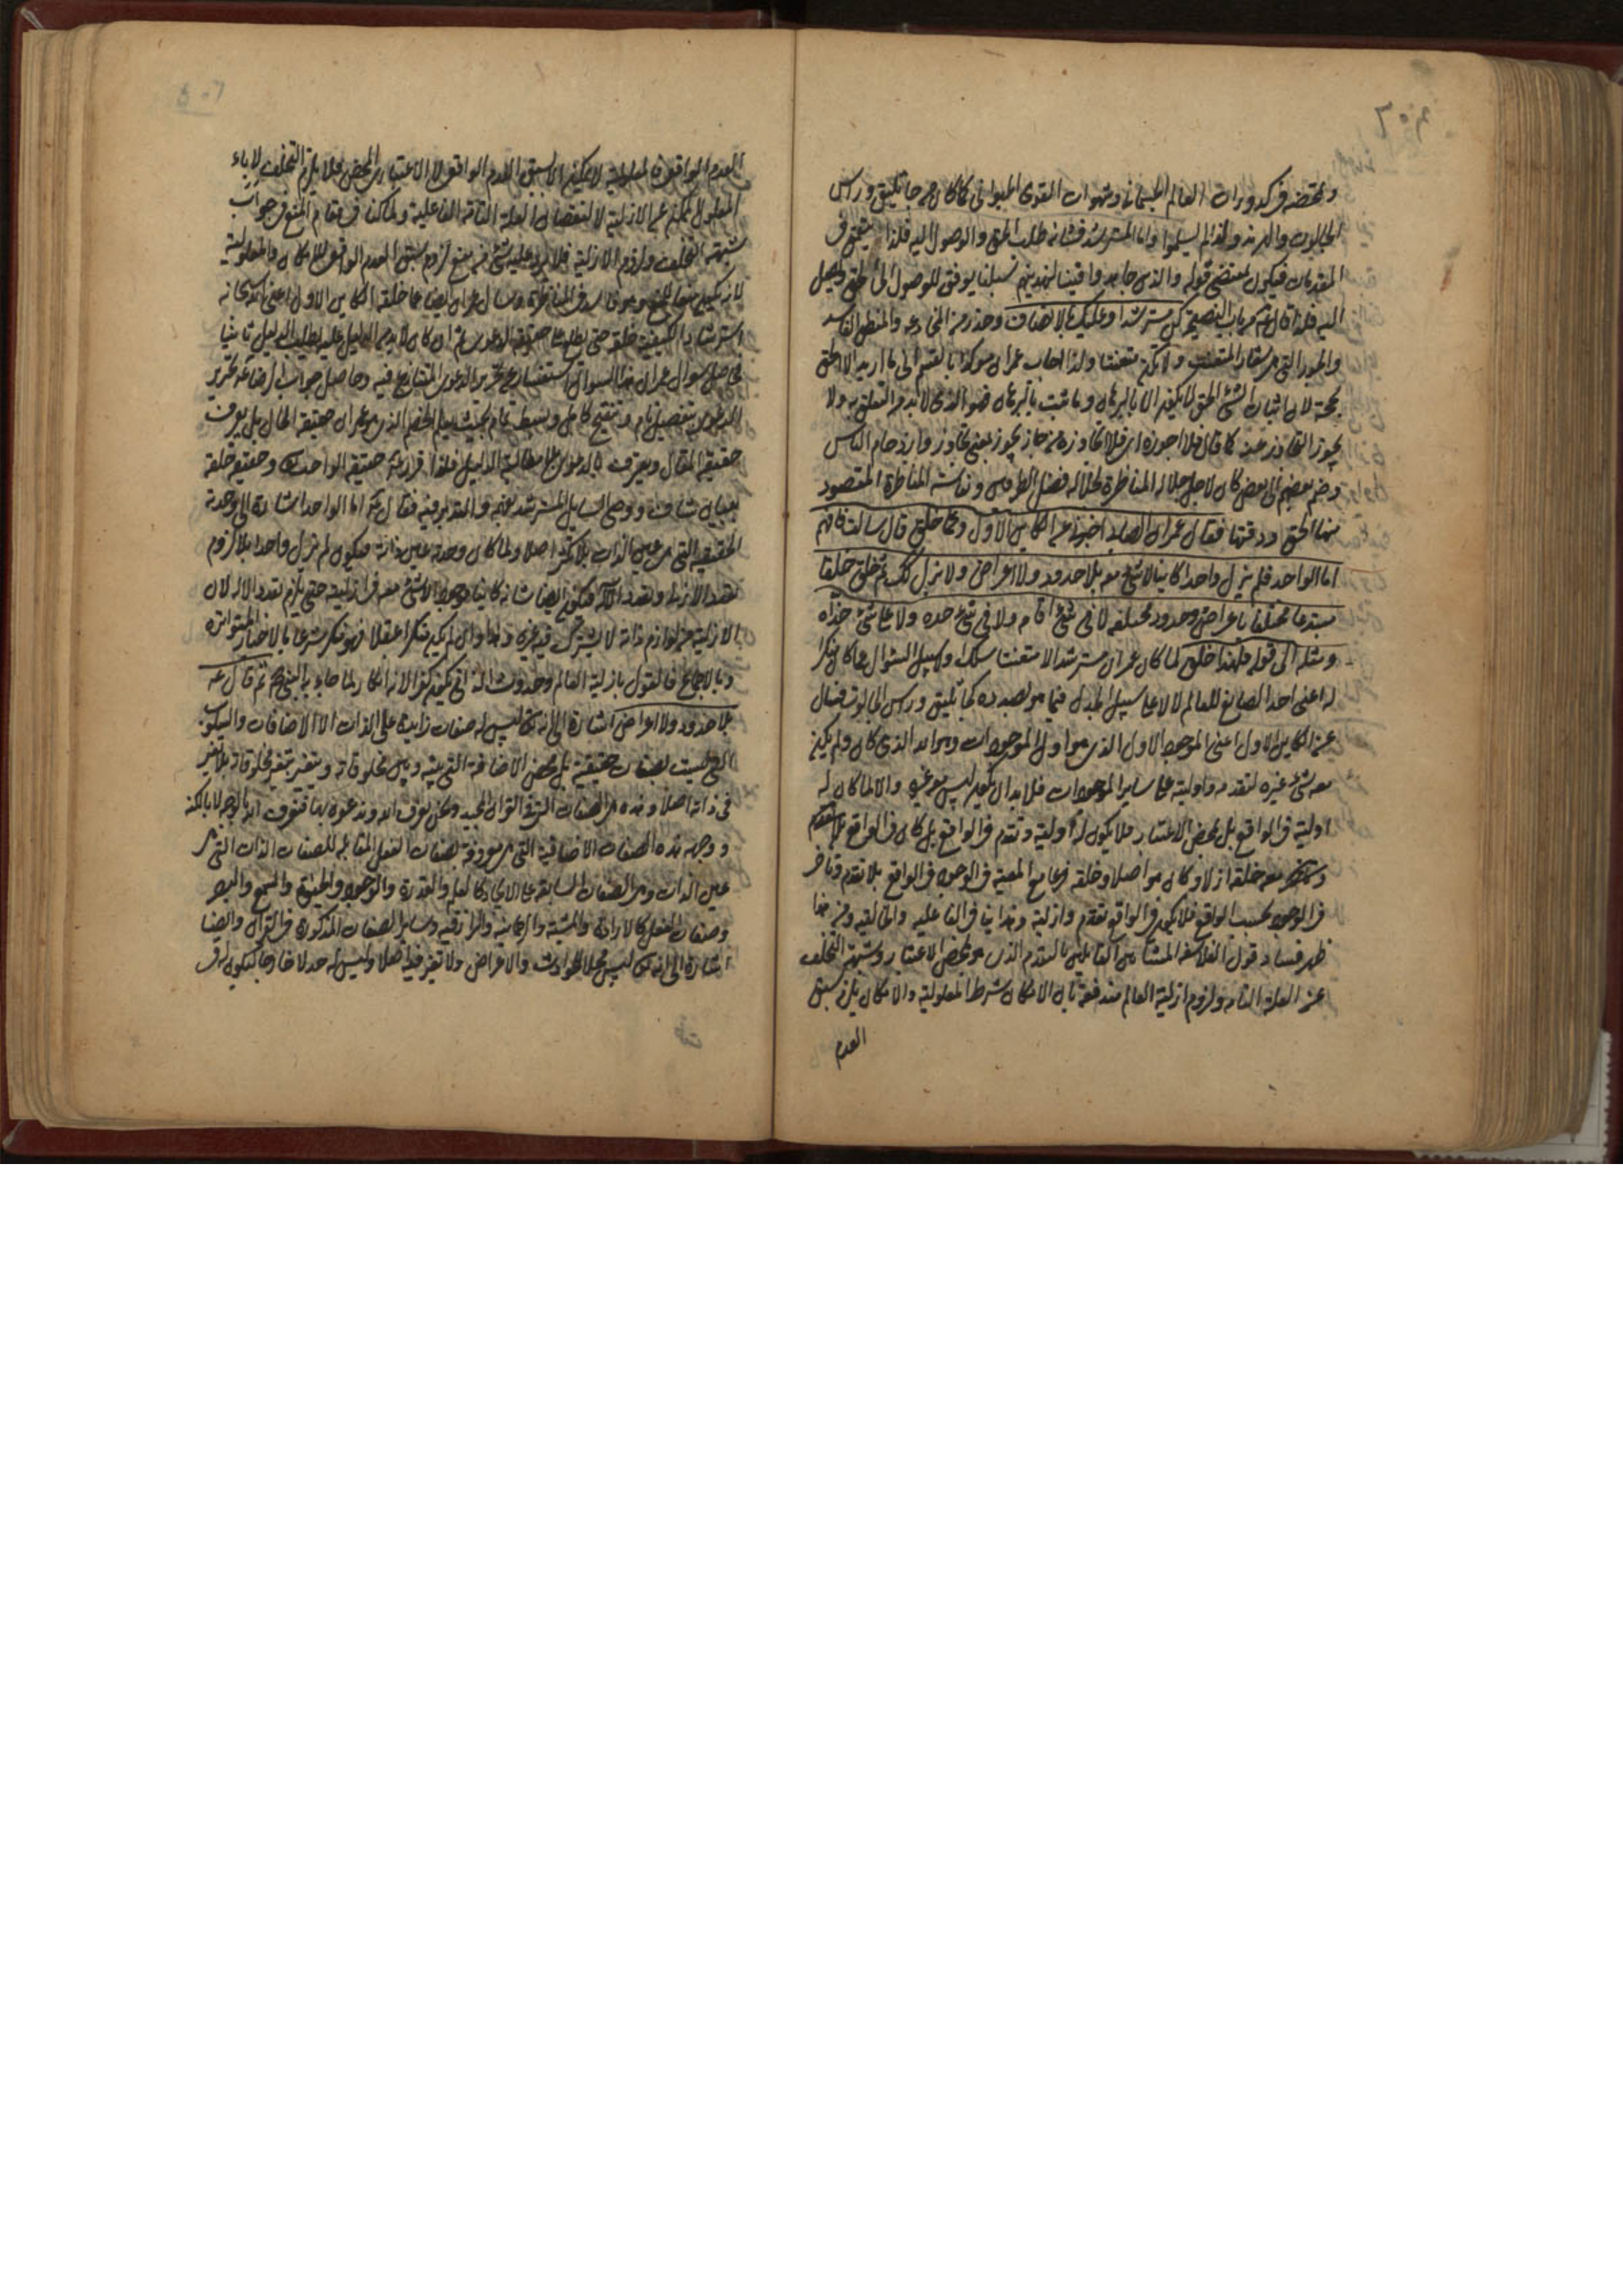 ومحتضه في كدورات العالم الجسماني وشهوات القوى الحيواني كما كان جاثليق وراس
الجالوت والهربذ ولهذا لم يسلموا واما المسترشد فشانه طلب الحق والوصول اليه فلذا يتعمق في
المقدمات فيكون بمقتضى قوله والذين جاهدوا فينا لنهدينهم سبلنا يوفق للوصول الى الحق
اليه فلذا قال من باب النصيحة كن مسترشدا وعليك بالانصاف وحذر من
والجور التي هي شعار المتعنت ولا تكن متعنتا ولذا اجاب عمران موكدا بالقسم اني ما اريد الا الحق
لان اثبات الشئ الحق لا يمكن الا بالبرهان وما ثبت بالبرهان فهو الذي لا بد من التعلق به ولا
يجوز التجاوز عنه كما قال فلا اجوزه اي فلا اتجاوزه من جاز يجوز بمعنى تجاوز وازدحام الناس
وضم بعضهم الى بعض كان لاجل جلالة المناظرة لجلالة فضل الطرفين ونفاسة المناظرة المقصود
منها الحق ودقتها فقال عمران الصابي اخبرني عن الكاين الاول وعما خلق قال سالت فافهم
اما الواحد فلم يزل واحدا كاينا لا شئ معه بلا حدود ولا اعراض ولا يزال كذلك ثم خلق خلقا
مبتدعا مختلفا باعراض وحدود مختلفة لا في شئ اقامه ولا في شئ حده ولا على شئ حذاه
ومثله الى قوله فلهذا خلق لما كان عمران مسترشدا لا متعنتا سلك سبيل السؤال عما كان منكرا
له اعني احد الصانع للعالم لا على سبيل الجدل فيما هو بصدده كجاثليق وراس الجالوت فسال
عن الكاين الاول اعني الموجود الاول الذي هو اول الموجودات وهو الله الذي كان ولم يكن
معه شئ غيره لتقدمه واوليته على ساير الموجودات فلا بد ان يكون ليس معه غيره والا لما كان له
اولية في الواقع بل بمحض الاعتبار فلا يكون له اولية وتقدم في الواقع بل كان في الواقع بلا تقدم
معه خلقه ازلا وكان هو اصلا وخلقه فرعا مع المعية في الوجود في الواقع بلا تقدم وتاخر
في الوجود بحسب الواقع فلا يكون في الواقع تقدم وازلية وهذا ينافي الفاعلية والخالقية ومن هذا
ظهر فساد قول الفلاسفة المشائين القائلين بالتقدم الذي هو بمحض الاعتبار وشبهتهم التخلف
عن العلة التامة ولزوم ازلية العالم مندفعة بان الامكان شرط المعلولية والامكان يلزم سبق
العدم
العدم الواقع فالمعلولية لا يمكن الا بسبق العدم الواقع لا الاعتباري المحض فلا يلزم التخلف لاباء
المعلول الممكن عن الازلية لا لنقصان العلة التامة الفاعلية ولما كنا في مقام المنع في جواب
شبهة التخلف ولزوم الازلية فلا يرد علينا شئ من منع لزوم سبق العدم الواقع للامكان والمعلولية
لانه يكون منعا للمنع وهو فاسد في المناظرة وسال عمران ايضا عما خلقه الكاين الاول اعني
استرشاد الكيفية خلقه حتى يطلع على حقيقة الدعوى ثم ان كان لا بد من الدليل عليه يطلب الدليل ثانيا
فحاصل سوال عمران هذا السوال استفسار عن تحرير الدعوى المتنازع فيه وحاصل جواب الرضا تحرير
للدعوى بتفصيل تام وتنقيح كامل وبسط تمام بحيث يعلم الخصم الذي هو عمران حقيقة الحال بل يعرف
حقيقة المقال ويعترف بالدعوى بلا مطالبة الدليل فلذا قرر حقيقة الواحد وحقيقة خلقه
ببيان شاف ووصى السايل المسترشد بفهمه والتدبر فيه فقال اما الواحد اشارة الى وحدته
الحقيقية التي هي عين الذات بلا تكثر اصلا ولما كان وحدته عين ذاته فيكون لم يزل واحدا بلا لزوم
تعدد الازلية وتعدد الالهة فيكون ايضا شانه كاينا وموجودا لا شئ معه في ازليته حتى يلزم تعدد الاله لان
الازلية من لوازم ذاته لا يشترك فيه غيره وهذا وان لم يكن منكرا عقلا فهو منكر شرعا بالاخبار المتواترة
وبالاجماع فالقول بازلية العالم وحدوث الذاتي يكون كفرا لانه انكار لما جاء به النبي ثم قال
بلا حدود ولا اعراض اشارة الى انه تعالى ليس له صفات زايدة على الذات الا الاضافات والسلوب
التي ليست بصفات حقيقية بل بمحض الاضافة التي بينه وبين مخلوقاته ويتغير بتغير مخلوقاته بلا تغير
في ذاته اصلا وهذه هي الصفات التي في القران المجيد ونحن نعرف الله وندعوه بها فنعرف انه بالوجه لا بالكنه
ووجهه هذه الصفات الاضافية التي هي معروفة بصفات الفعل المقابلة للصفات الذات التي هي
عين الذات وهي الصفات السابقة على الايجاد كالعلم والقدرة والوجود والحيوة والسمع والبصر
وصفات الفعل كالارادة والمشية والرحمانية والرازقية وساير الصفات المذكورة في القران وايضا
اشارة الى انه تعالى ليس محلا للحوادث والاعراض ولا تغير فيه اصلا وليس له حد لا خارجا ليكون له